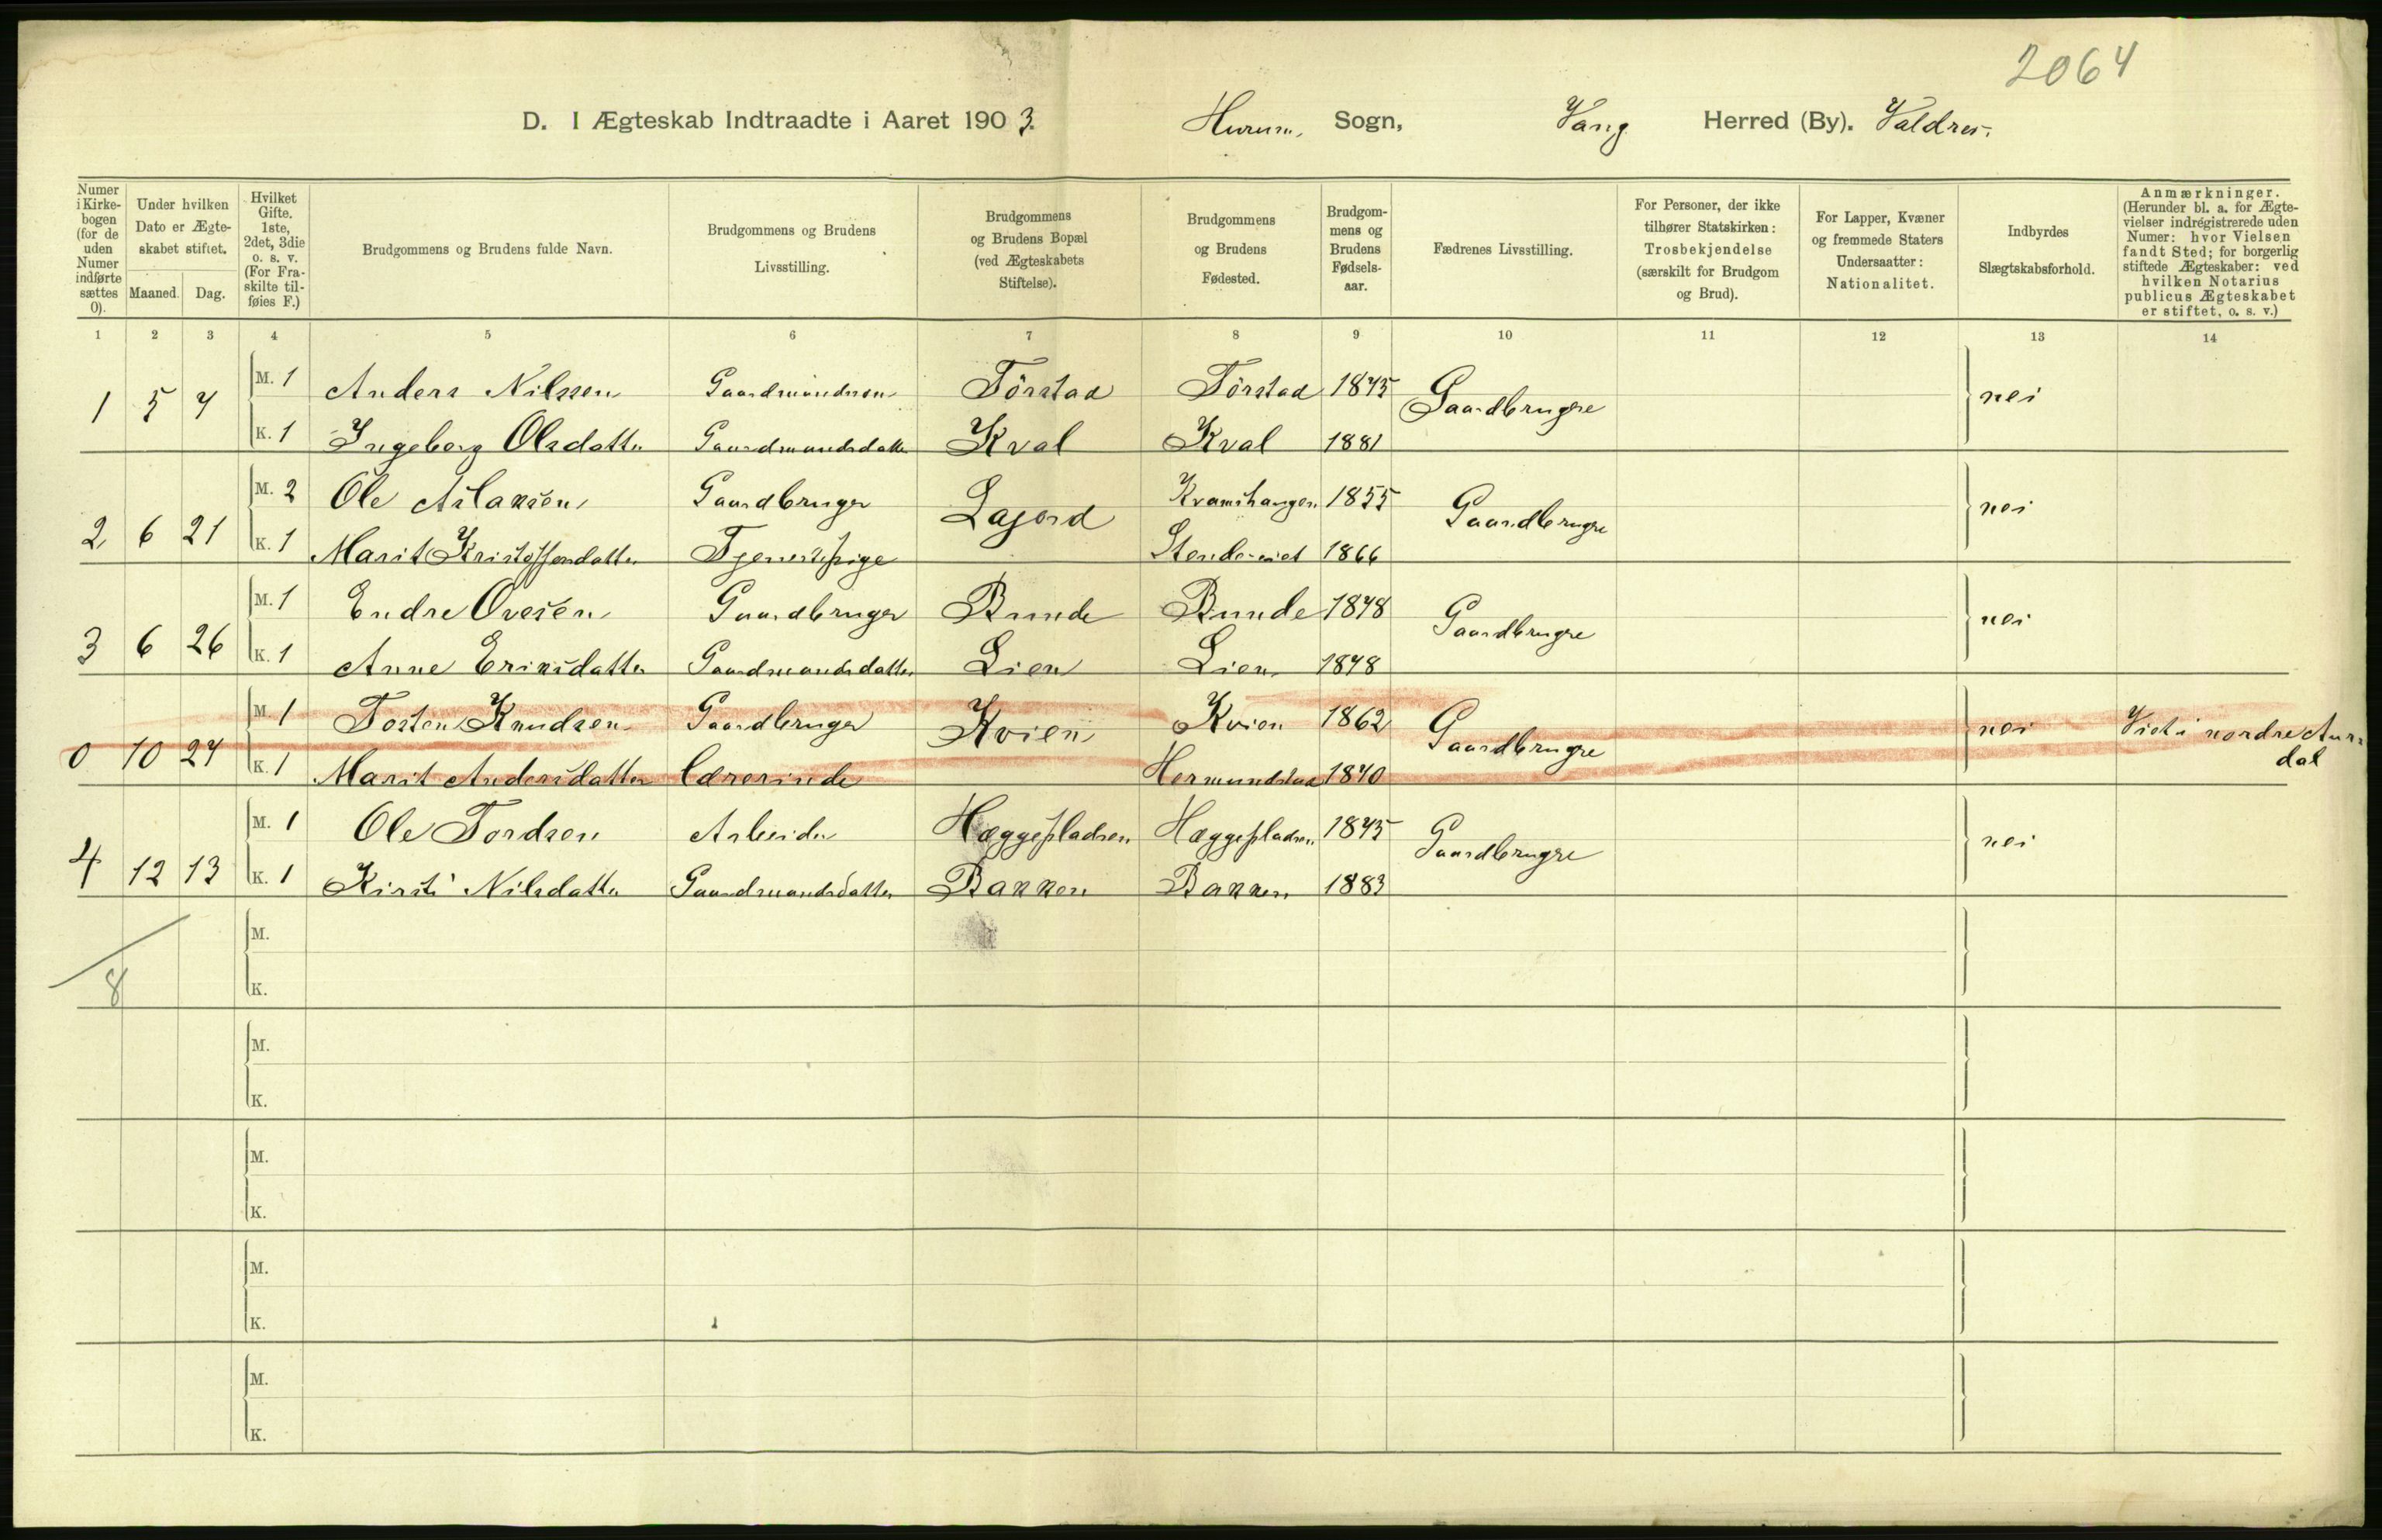 2064
D. I Ægteskab Indtraadte i Aaret 1903. Hurum, Sogn, Vang Herred (By). Valdres.
Numer i Kirkebogen (for de uden Numer indførte sættes 0).
Under hvilken Dato er Ægteskabet stiftet.
Maaned. Dag.
Hvilket Gifte. 1ste, 2det, 3die o. s. v. (For Fraskilte tilføies F.)
Brudgommens og Brudens fulde Navn.
Brudgommens og Brudens Livsstilling.
Brudgommens og Brudens Bopæl (ved Ægteskabets Stiftelse).
Brudgommens og Brudens Fødested.
Brudgommens og Brudens Fødselsaar.
Fædrenes Livsstilling.
For Personer, der ikke tilhører Statskirken: Trosbekjendelse (særskilt for Brudgom og Brud).
For Lapper, Kvæner og fremmede Staters Undersaatter: Nationalitet.
Indbyrdes Slægtskabsforhold.
Anmærkninger. (Herunder bl. a. for Ægtevielser indregistrerede uden Numer: hvor Vielsen fandt Sted; for borgerlig stiftede Ægteskaber: ved hvilken Notarius publicus Ægteskabet er stiftet, o. s. v.)
1 2 3 4 5 6 7 8 9 10 11 12 13 14
M. 1 Anders Nilssen Gaardmandssøn Törstad Törstad 1875
1 5 7 Gaardbrugre nei
K. 1 Ingeborg Olsdatter Gaardmandsdatter Kval Kval 1881
M. 2 Ole Aslaksen Gaardbruger Kvamshaugen 1855
2 6 21 Lajord Gaardbrugre nei
K. 1 Marit Kristoffersdatter Tjenestepige 1866
M. 1 Endre Ovesen Gaardbruger Bunde Bunde 1878
3 6 26 Gaardbrugre nei
K. 1 Anne Eriksdatter Gaardmandsdatter Lien Lien 1878
M. 1 Tosten Knudsen Gaardbruger Kvien 1862
0 10 24 Kvien Gaardbrugre nei Viet i nordre Aur=
dal
K. 1 Marit Andersdatter Lærerinde Hermundstad 1870
M. 1 Ole Tordsen Arbeider Hæggepladsen Hæggepladsen 1875
4 12 13 Gaardbrugre nei
K. 1 Kirsti Nilsdatter Gaardmandsdatter Bakken Bakken 1883
M.
8
K.
M.
K.
M.
K.
M.
K.
M.
K.